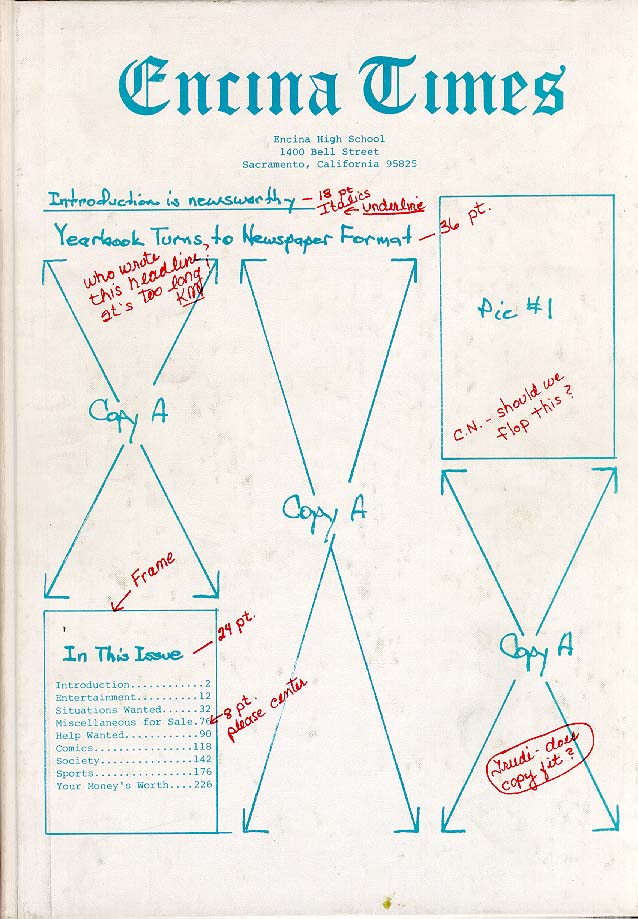 Encina Times
Encina High School
1400 Bell Street
Sacramento, California 95825
Introduction is newsworthy - 18 pt. Italics underline
Yearbook Turns, to Newspaper Format - 36 pt.
who wrote
this headline?
It's too long!
KM
Copy A
Frame
In This Issue - 24 pt.
Introduction............2
Entertainment..........12
Situations Wanted......32
Miscellaneous for Sale.76
Help Wanted............90
Comics................118
Society...............142
Sports................176
Your Money's Worth....226
8 pt.
please center
Copy A
Pic #1
C.N. - should we
flop this?
Copy A
Trudi - does
copy fit?